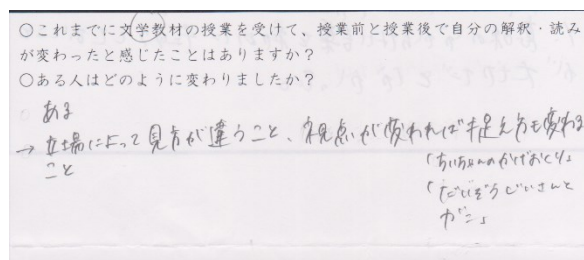 ○これまでに文学教材の授業を受けて、授業前と授業後で自分の解釈・読み
が変わったと感じたことはありますか？
○ある人はどのように変わりましたか？
ある
→ 立場によって見方が違うこと、視点が変われば捉え方も変わる
こと
「ちいちゃんのかげおくり」
「だいぞうじいさんと
ガン」